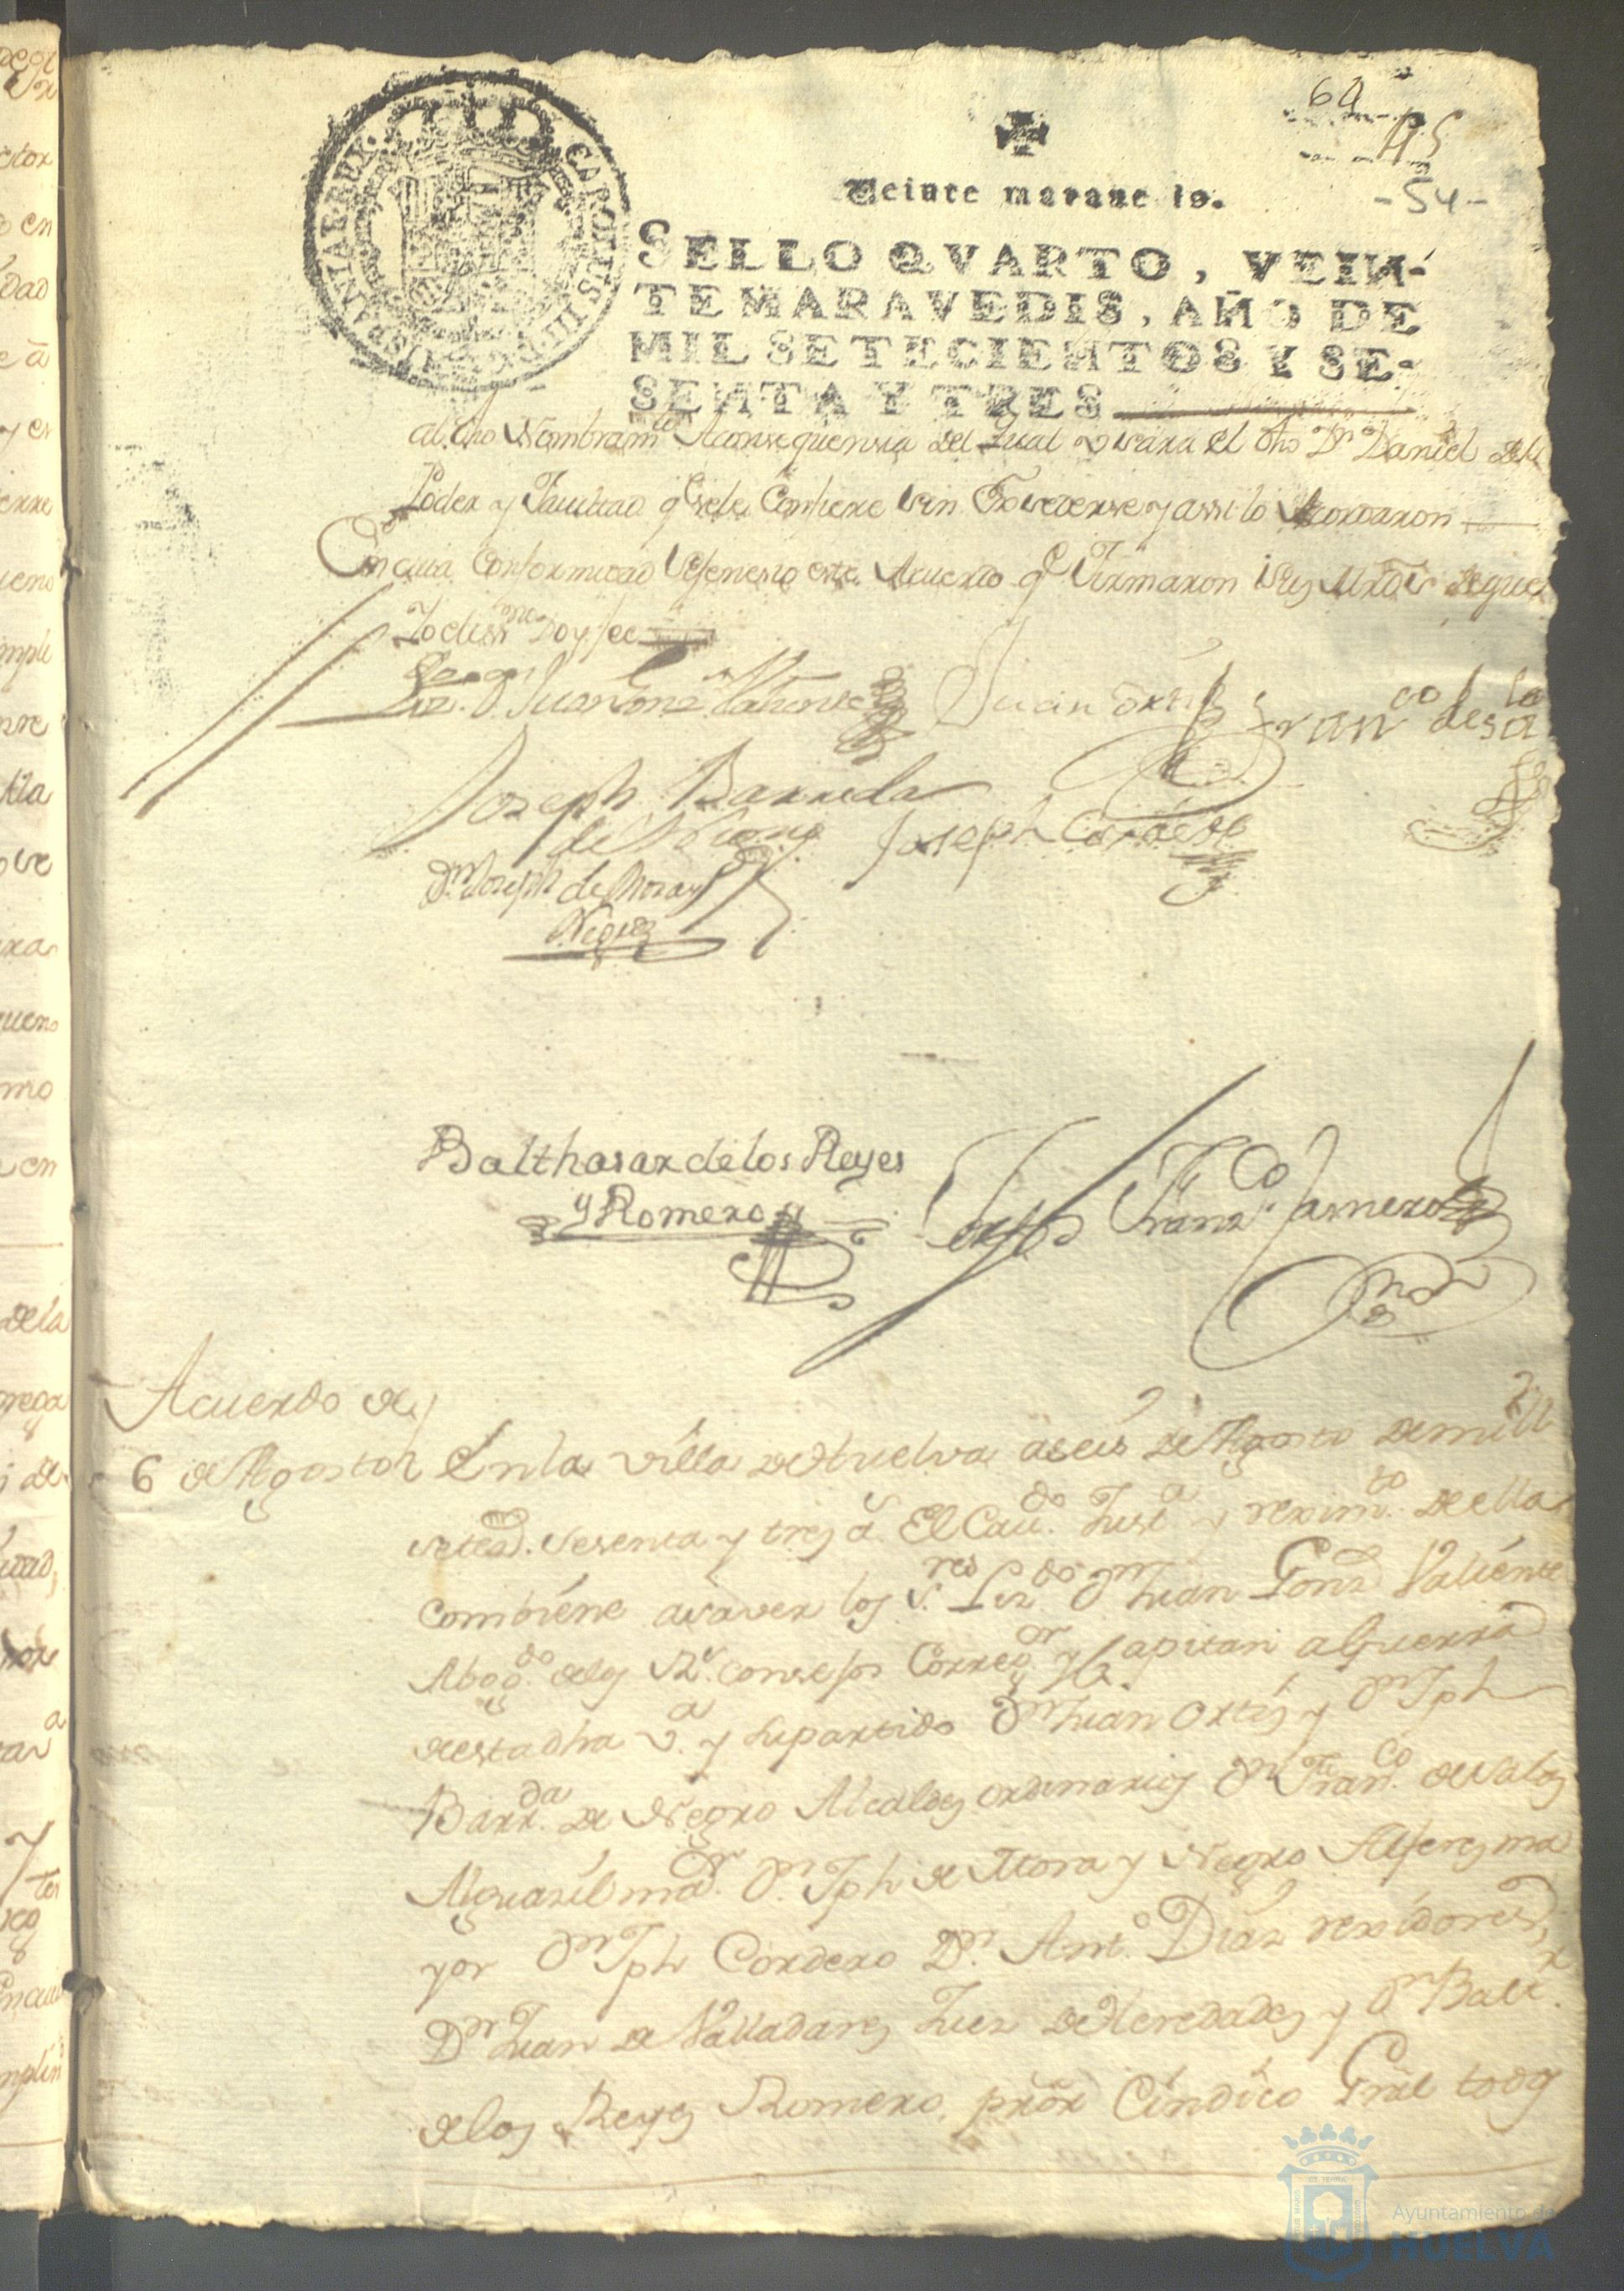 64
45
-54-
Veinte maravedis.
SELLO QVARTO, VEIN-
TE MARAVEDIS, AÑO DE
MIL SETECIENTOS Y SE-
SENTA Y TRES
CAROLUS III D G HISPANIAR REX
al dho Nombramto Aconsequensia del qual usara el dho Dn Daniel del
Poder y Facultad qe sele Confiere sin Exsederse y assi lo Acordaron
En cuia Conformidad sefenesio este Acuerdo qe Firmaron sus Mrds deque
Yo el essno Doy fee
Lizdo D. Juan Gonz Valiente
Juan Ortis
Franco de sa
Joseph Barreda
de Negro
Joseph Cordero
Dn Joseph de Mora y
Negro
Balthasar de los Reyes
y Romero
Franzco Jasnero
Acuerdo de
6 de Agosto
En la villa de Huelva a seis de Agosto de mill
seteds. sesenta y tres as El Caudo. Justa y reximto. de ella
combiéne a saver los Sres Lizdo Dn Juan Gonz Valiénte
Abogdo. de los Rs. consejos Corregor y Capitan a Guerra
de esta dha va. y su partido Dn Juan Ortis y Dn Jph
Barrda. de Negro Alcaldes ordinarios Dn Franco. de salas
Alguasil mor. Dn Jph de Mora y Negro Alferes ma
yor Dn Jph Cordero Dn Anto. Diaz rexidores,
Dn Juan de Valladares Juez de Heredades y Dn Baltr.
de los Reyes Romero, prôr Cindico Gral todos
Ayuntamiento de
HUELVA